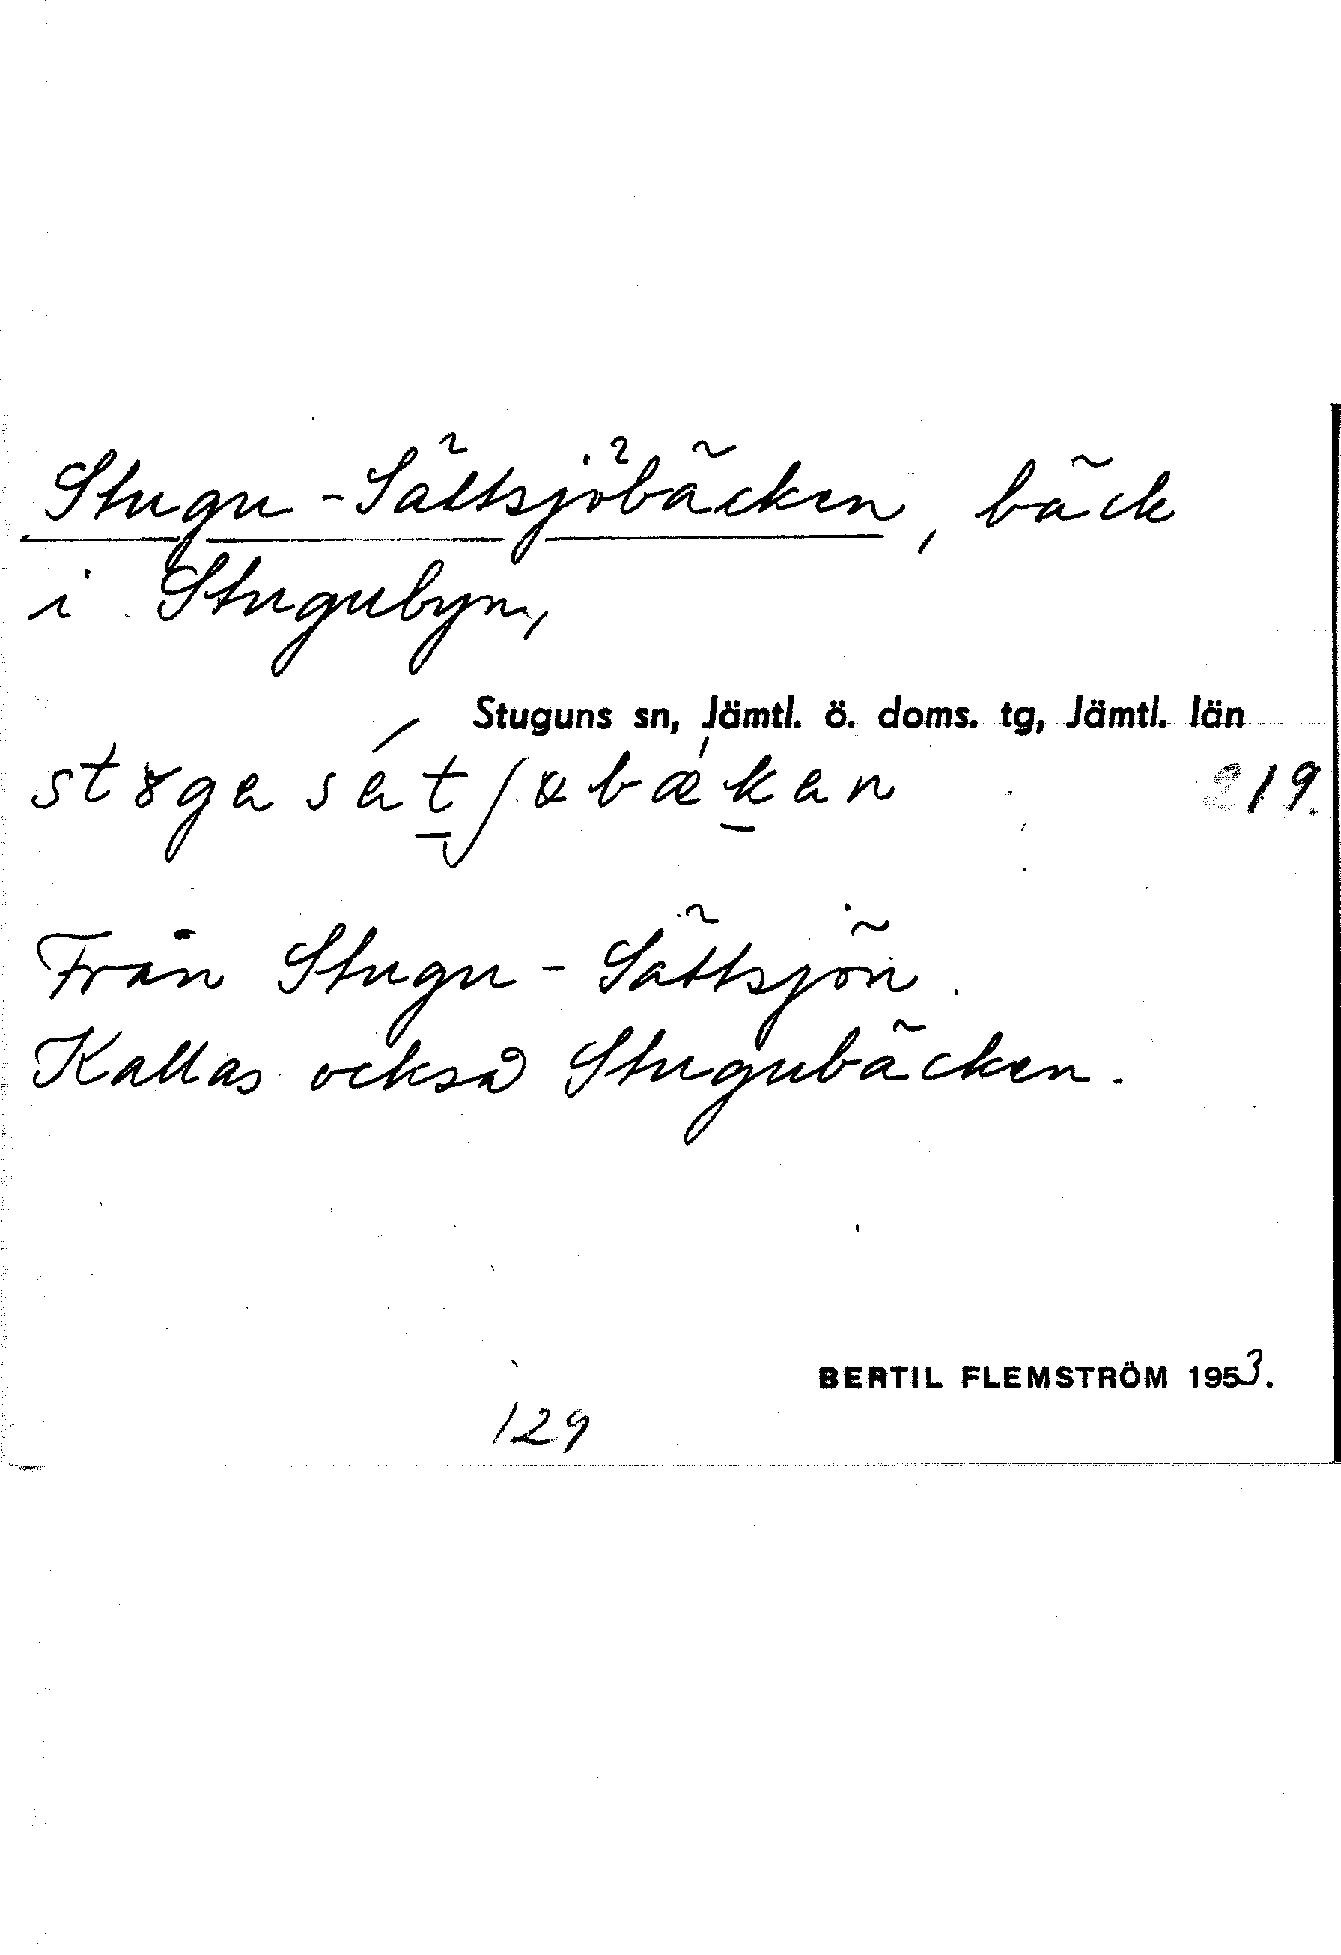 Stugu-Sättsjöbäcken, bäck
i Stugubyn,
Stuguns sn, Jämtl. ö. doms. tg, Jämtl. län
19.
Från Stugu-Sättsjön.
Kallas också Stugubäcken.
BERTIL FLEMSTRÖM 1953.
129